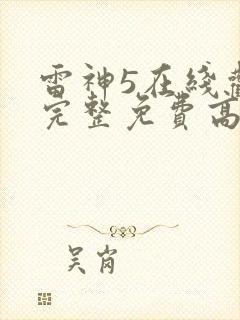 雷神5在綫觀
完整免費高
吴肖